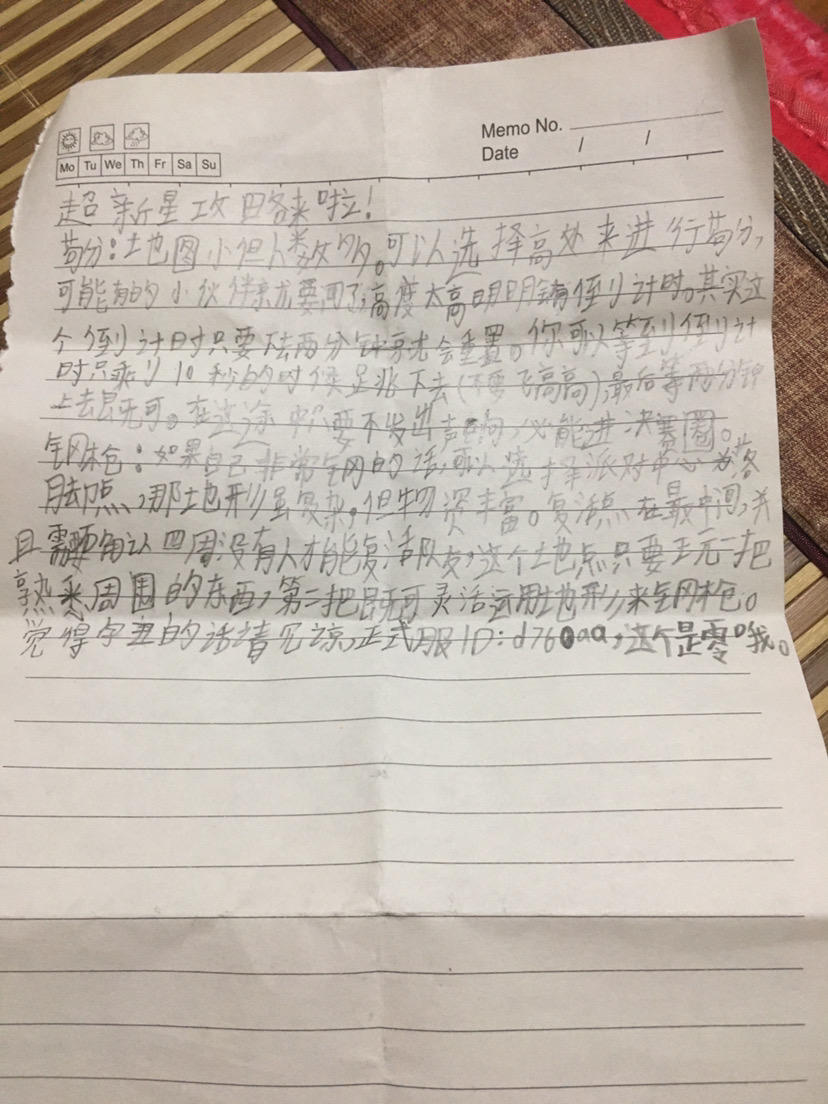 Memo No.
Date / /
Mo Tu We Th Fr Sa Su
超新星攻略来啦!
苟分:地图小但人数多。可以选择高处来进行苟分,
可能有的小伙伴就要问了,高度太高明明有倒计时。其实这
个倒计时只要下去两分钟就会重置。你可以等到倒计
时只剩10秒的时候跳下去(不要飞高高),最后等两分钟
上去既可。在这途中只要不发出声响,必能进决赛圈。
钢枪:如果自己非常钢的话,可以选择派对中心为落
脚点,那地形虽复杂,但物资丰富。复活点在最中间,并
且需要确认四周没有人才能复活队友,这个地点只要玩一把
熟悉周围的东西,第二把既可灵活运用地形来钢枪。
觉得字丑的话请见谅,正式服ID:d760aa,这个是零哦。